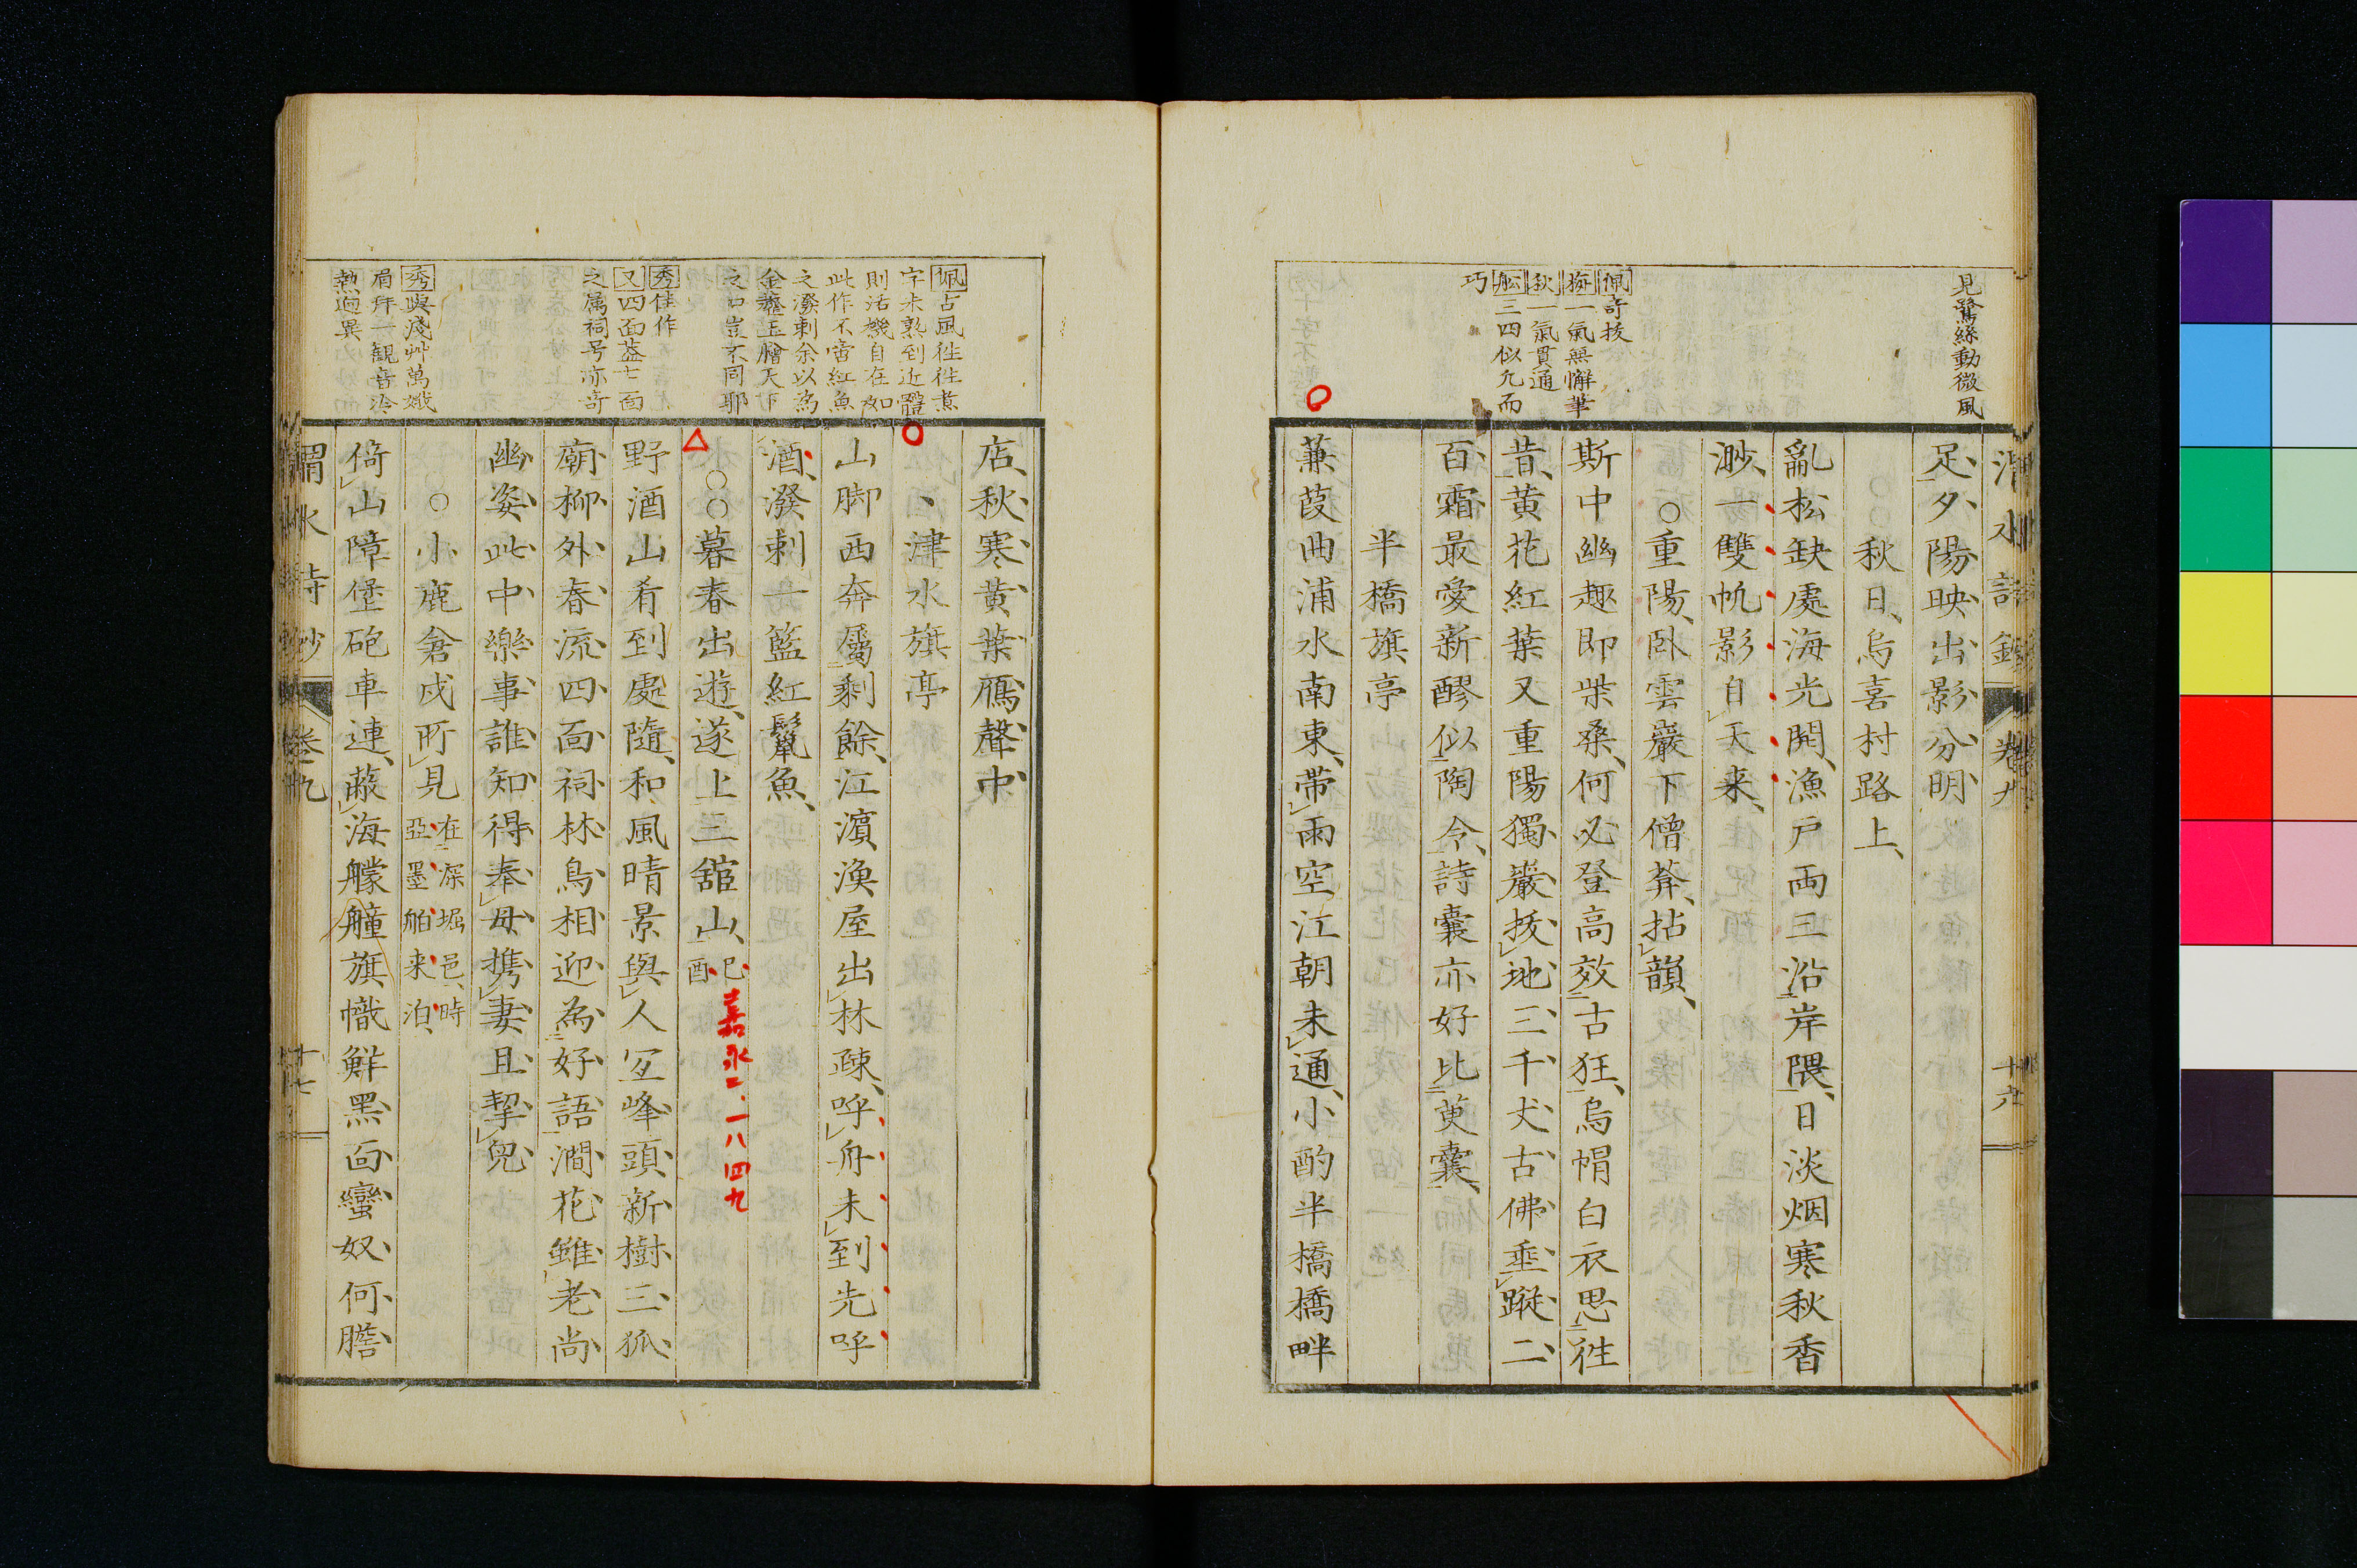 見鷺絲動微風
佩奇拔
梅一氣無懈筆
秋一氣貫通
舩三四似九而
巧
渭水詩鈔
卷九
十六
足夕陽映出影分明
○○秋日烏喜村路上
亂松缺處海光開漁戶両三沿岸隈日淡烟寒秋香
渺一雙帆影自天来
○重陽臥雲巖下僧葊拈韻
斯中幽趣即柴桑何必登高效古狂烏帽白衣思往
昔黄花紅葉又重陽獨巖拔地三千丈古佛垂蹤二
百霜最愛新醪似陶令詩囊亦好比萸囊
半橋旗亭
蒹葭曲浦水南東帶雨空江朝未通小酌半橋橋畔
佩占風往往煮
字未熟到近體
則活機自在如
此作不啻紅魚
之潑剌余以為
金虀玉膾天下
之口豈不同耶
秀佳作
又四面葢十一面
之属祠号亦奇
秀與淺艸萬孅
肩拜一観音冷
熱逈異
店秋寒黄葉鴈聲中
津水旗亭
山脚西奔屬剩餘江濵漁屋出林疎呼舟未到先呼
酒潑剌一籃紅鬣魚
○○暮春出遊遂上三舘山己
酉
嘉永二.一八四九
野酒山肴到處隨和風晴景與人宜峰頭新樹三狐
廟柳外春流四面祠林鳥相迎為好語澗花雖老尚
幽姿此中樂事誰知得奉母携妻且挈兒
○小鹿倉戍所見在深堀邑時
亞墨舶来泊
倚山障堡砲車連蔽海艨艟旗幟鮮黑面蠻奴何膽
渭水詩鈔
卷九
十七